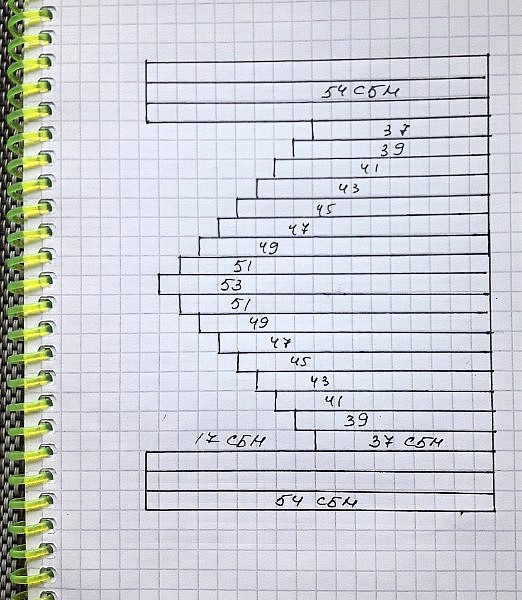 54 СБН
37
39
41
43
45
47
49
51
53
51
49
47
45
43
41
39
17 СБН 37 СБН
54 СБН